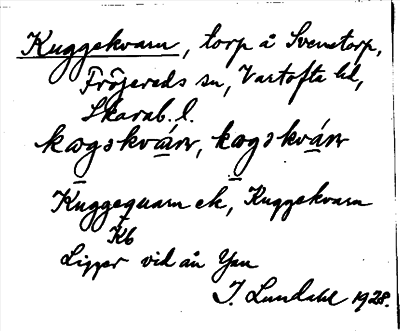 Kuggekvarn, torp å Svenstorp,
Fröjereds sn, Vartofta hd,
Skarab. l.
kægəkvárn, kægəkvárn
Kuggequarn ek, Kuggekvarn
Kb
Ligger vid ån Yan
I. Lundahl 1928.